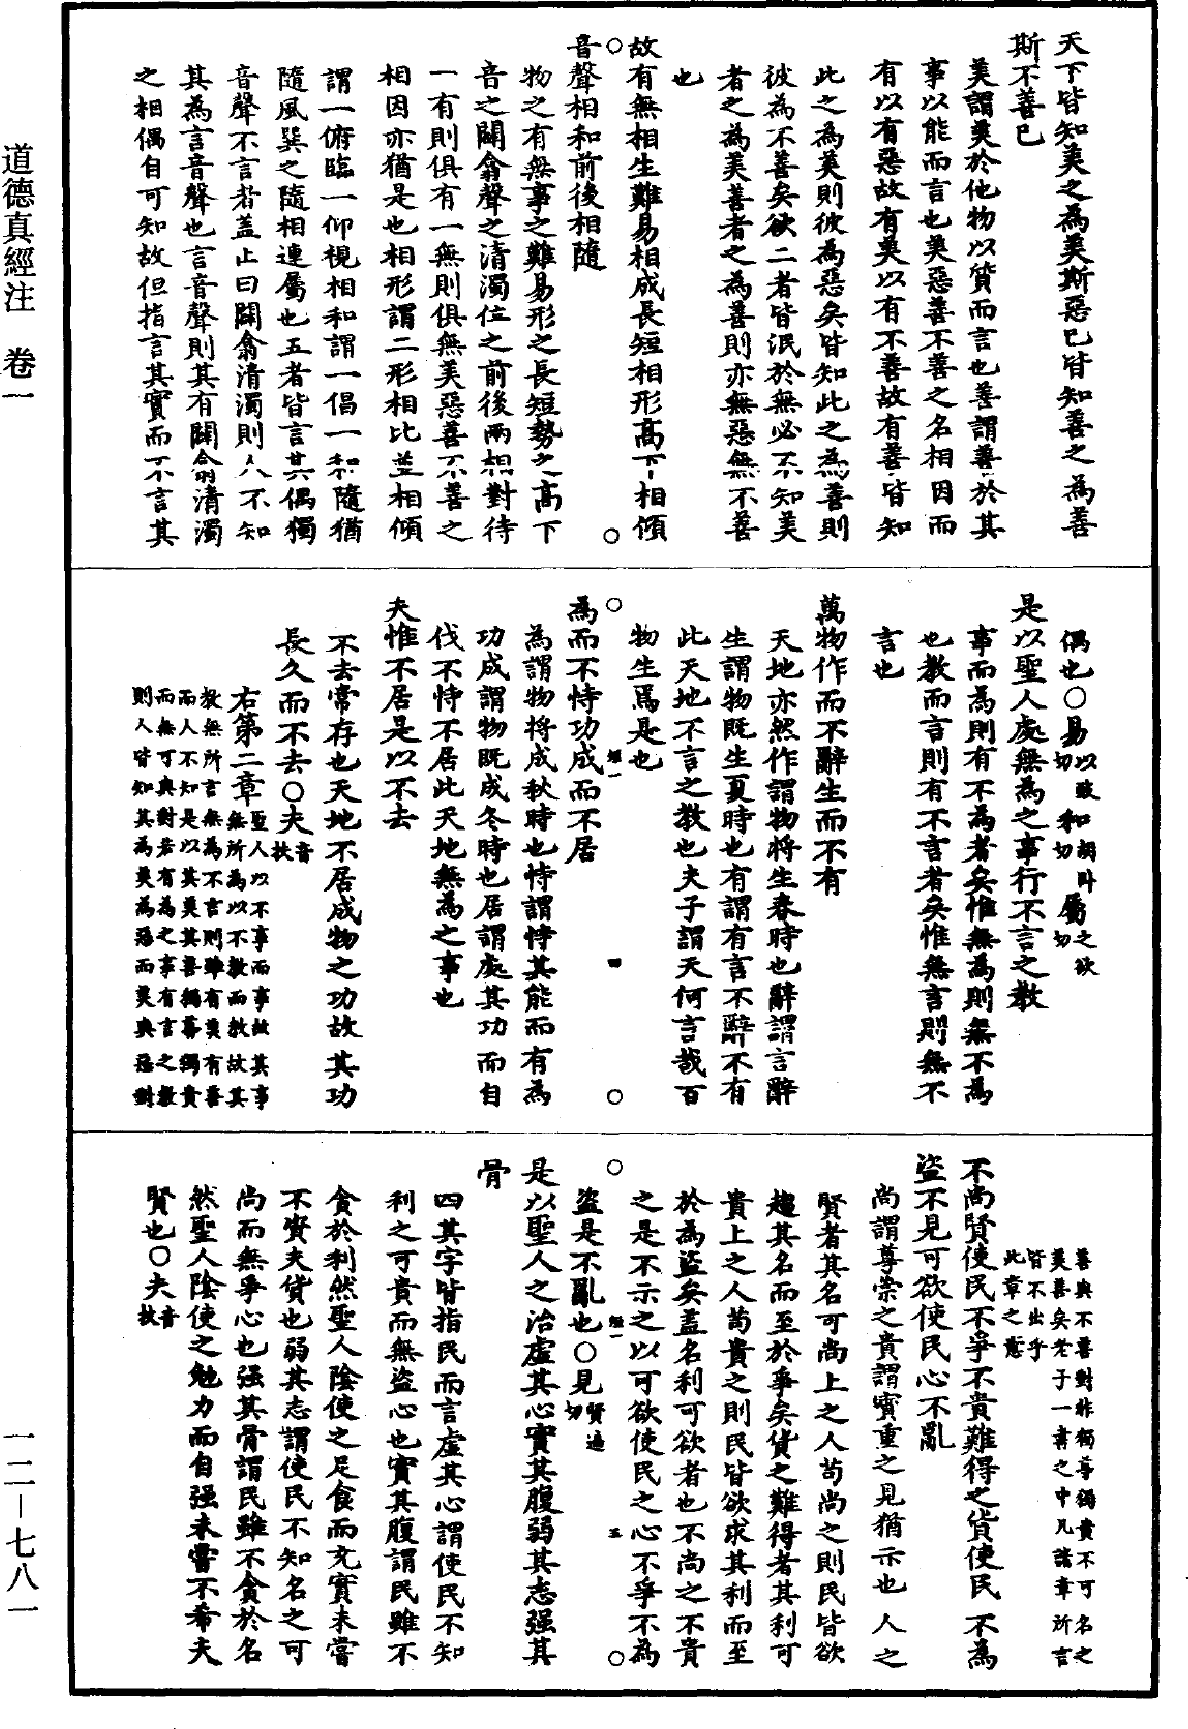 道德真經注　卷一
一二—七八一
天下皆知美之為美斯惡已皆知善之為善
斯不善已
美謂美於他物以質而言也善謂善於其
事以能而言也美惡善不善之名相因而
有以有惡故有美以有不善故有善皆知
此之為美則彼為惡矣皆知此之為善則
彼為不善矣欲二者皆泯於無必不知美
者之為美善者之為善則亦無惡無不善
也
故有無相生難易相成長短相形高下相傾
音聲相和前後相隨
物之有無事之難易形之長短勢之高下
音之闢翕聲之清濁位之前後兩相對待
一有則俱有一無則俱無美惡善不善之
相因亦猶是也相形謂二形相比並相傾
謂一俯臨一仰視相和謂一倡一和隨猶
隨風巽之隨相連屬也五者皆言其偶獨
音聲不言者蓋止曰闢翕清濁則人不知
其為言音聲也言音聲則其有闢翕清濁
之相偶自可知故但指言其實而不言其
偶也○易以豉切和胡卧切屬之欲切
是以聖人處無為之事行不言之教
事而為則有不為者矣惟無為則無不為
也教而言則有不言者矣惟無言則無不
言也
萬物作而不辭生而不有
天地亦然作謂物將生春時也辭謂言辭
生謂物既生夏時也有謂有言不辭不有
此天地不言之教也夫子謂天何言哉百
物生焉是也
短一　四
為而不恃功成而不居
為謂物將成秋時也恃謂恃其能而有為
功成謂物既成冬時也居謂處其功而自
伐不恃不居此天地無為之事也
夫惟不居是以不去
不去常存也天地不居成物之功故其功
長久而不去○夫音扶
右第二章聖人以不事而事故其事
無所為以不教而教故其
教無所言無為不言則雖有美有善
而人不知是以其美其善獨尊獨貴
而無可與對若有為之事有言之教
則人皆知其為美為惡而美與惡對
善與不善對非獨尊獨貴不可名之
美善矣老子一書之中凡諸章所言
皆不出乎
此章之意
不尚賢使民不爭不貴難得之貨使民不為
盜不見可欲使民心不亂
尚謂尊崇之貴謂寶重之見猶示也人之
賢者其名可尚上之人苟尚之則民皆欲
趨其名而至於爭矣貨之難得者其利可
貴上之人苟貴之則民皆欲求其利而至
於為盜矣蓋名利可欲者也不尚之不貴
之是不示之以可欲使民之心不爭不為
短一　五
盜是不亂也○見賢遍切
是以聖人之治虛其心實其腹弱其志强其
骨
四其字皆指民而言虛其心謂使民不知
利之可貴而無盜心也實其腹謂民雖不
貪於利然聖人陰使之足食而充實未嘗
不實夫貨也弱其志謂使民不知名之可
尚而無爭心也强其骨謂民雖不貪於名
然聖人陰使之勉力而自强未嘗不希夫
賢也○夫音扶